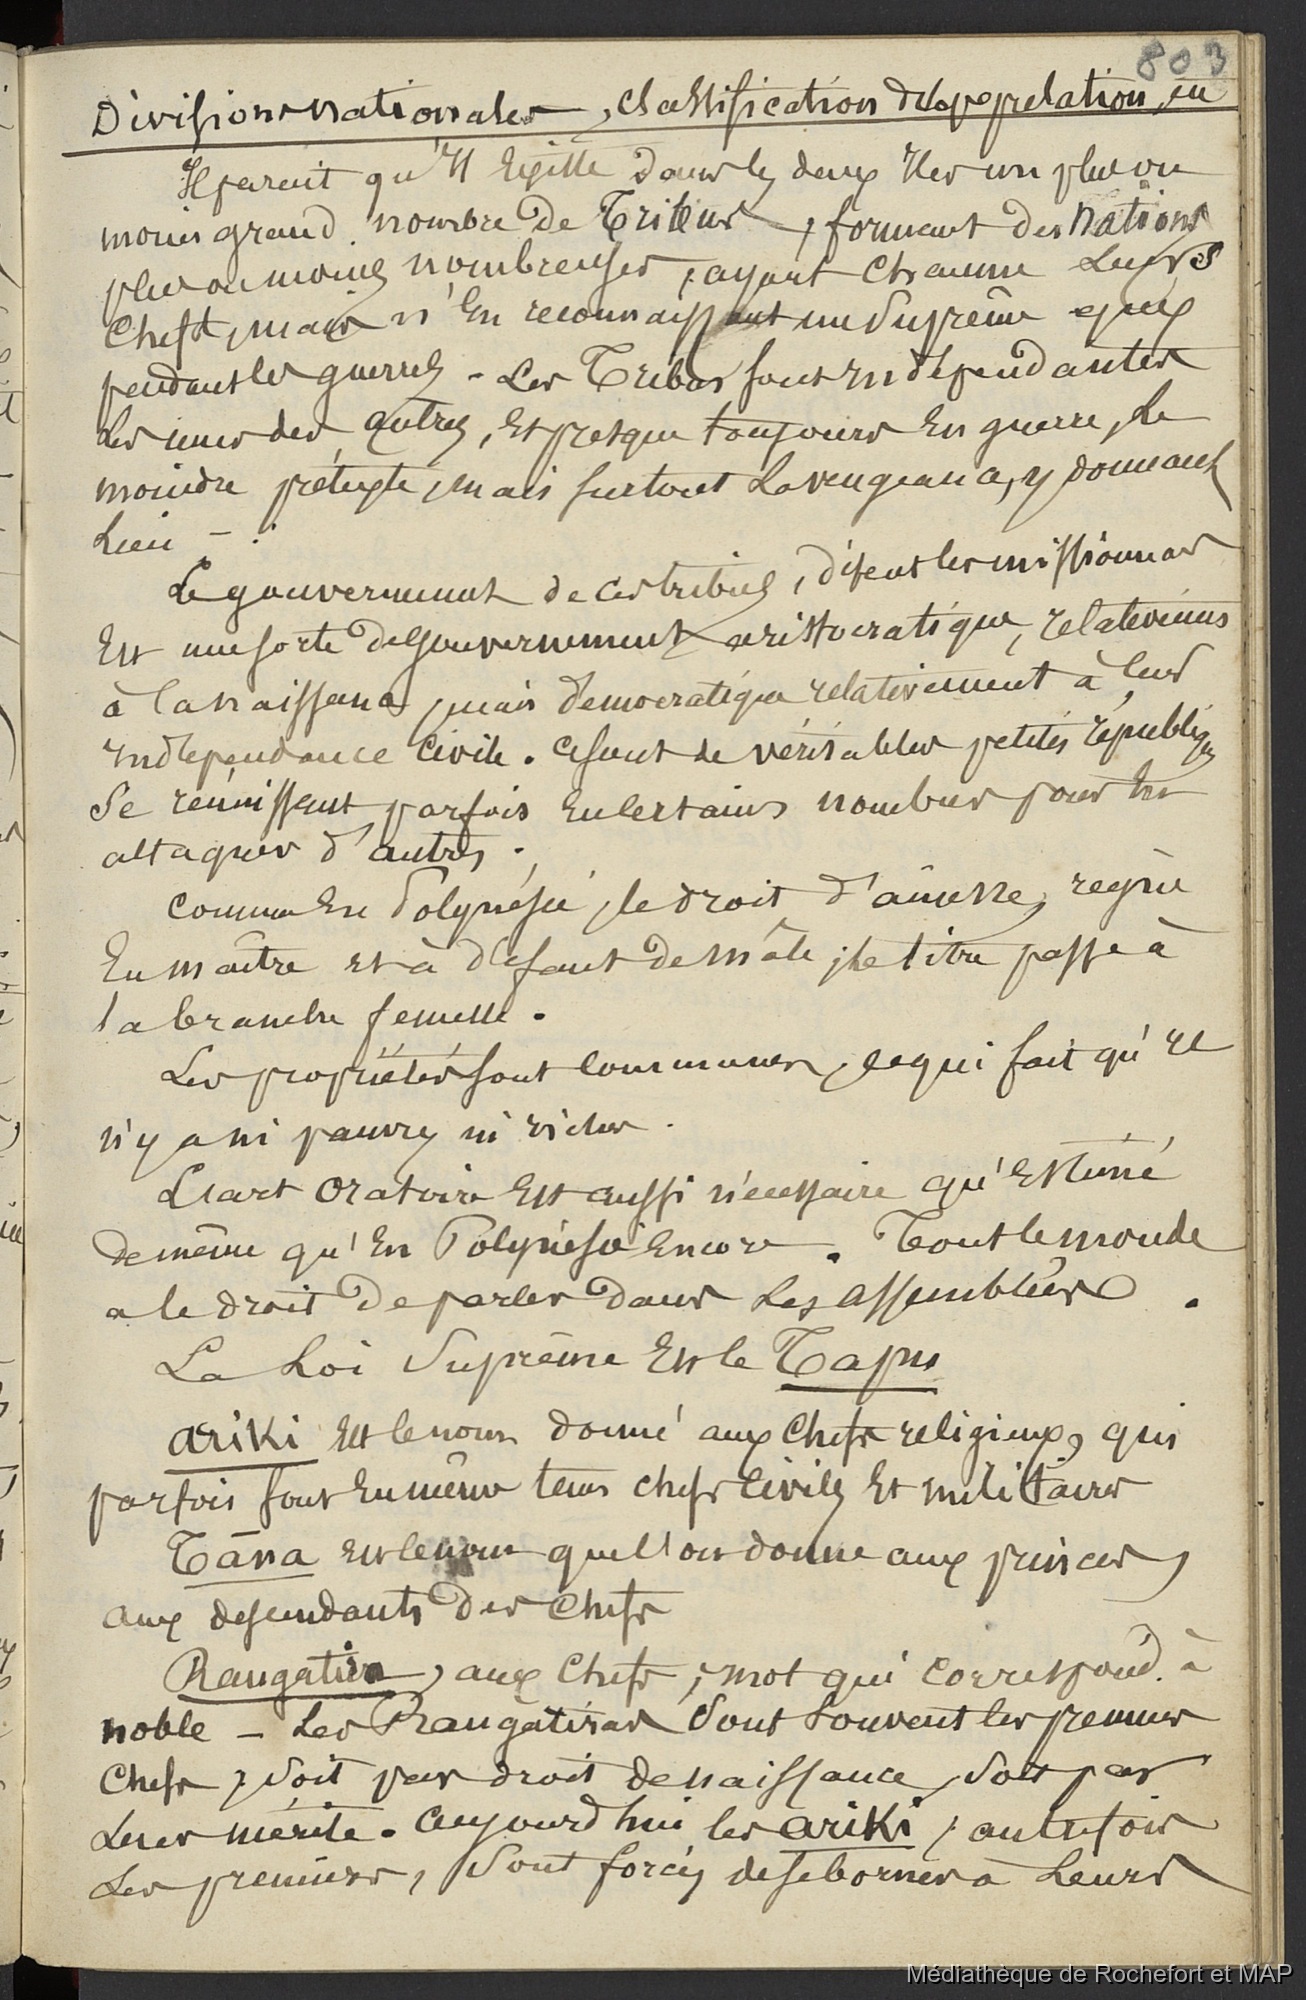 803
Divisions nationales, classification de la population, en
Il parait qu'il Existe dans les deux Iles un plus ou
moins grand nombre de Tribus, formant des Nations
plus ou moins nombreuses, ayant chacune Leurs
Chefs, mais n'En reconnaissant un Suprême que
pendant les guerres - Les Tribus sont indépendantes
Les unes des autres, Et presque toujours En guerre, Le
moindre prétexte, mais surtout La vengeance, y donnant
Lieu - .
Le gouvernement de ces tribus, disent les missionnaires
Est une sorte de gouvernement aristocratique, relativement
à la naissance, mais démocratique relativement à leur
indépendance civile. Ce sont de véritables petites républiques
Se réunissant parfois En certains nombres pour En
attaquer d'autres.
Comme En Polynésie, le droit d'aînesse, règne
En maître et à défaut de mâle, le titre passe à
la branche femelle.
Les propriétés sont communes, ce qui fait qu'il
n'y a ni pauvres ni riches.
L'art oratoire Est aussi nécessaire qu'Estimé
de même qu'En Polynésie Encore. Tout le monde
a le droit de parler dans Les assemblées.
La Loi Suprême Est le Tapu
Ariki Est le nom donné aux Chefs religieux, qui
parfois sont En même tems chefs civils Et militaires
Tâna Est le nom que l'on donne aux princes,
aux descendants des Chefs
Rangatira, aux Chefs, mot qui correspond à
noble - Les Rangatiras Sont Souvent les premiers
Chefs, Soit par droit de naissance, Soit par
Leur mérite. Aujourd'hui les ariki, autrefois
Les premiers, Sont forcés de se borner à Leurs
Médiathèque de Rochefort et MAP